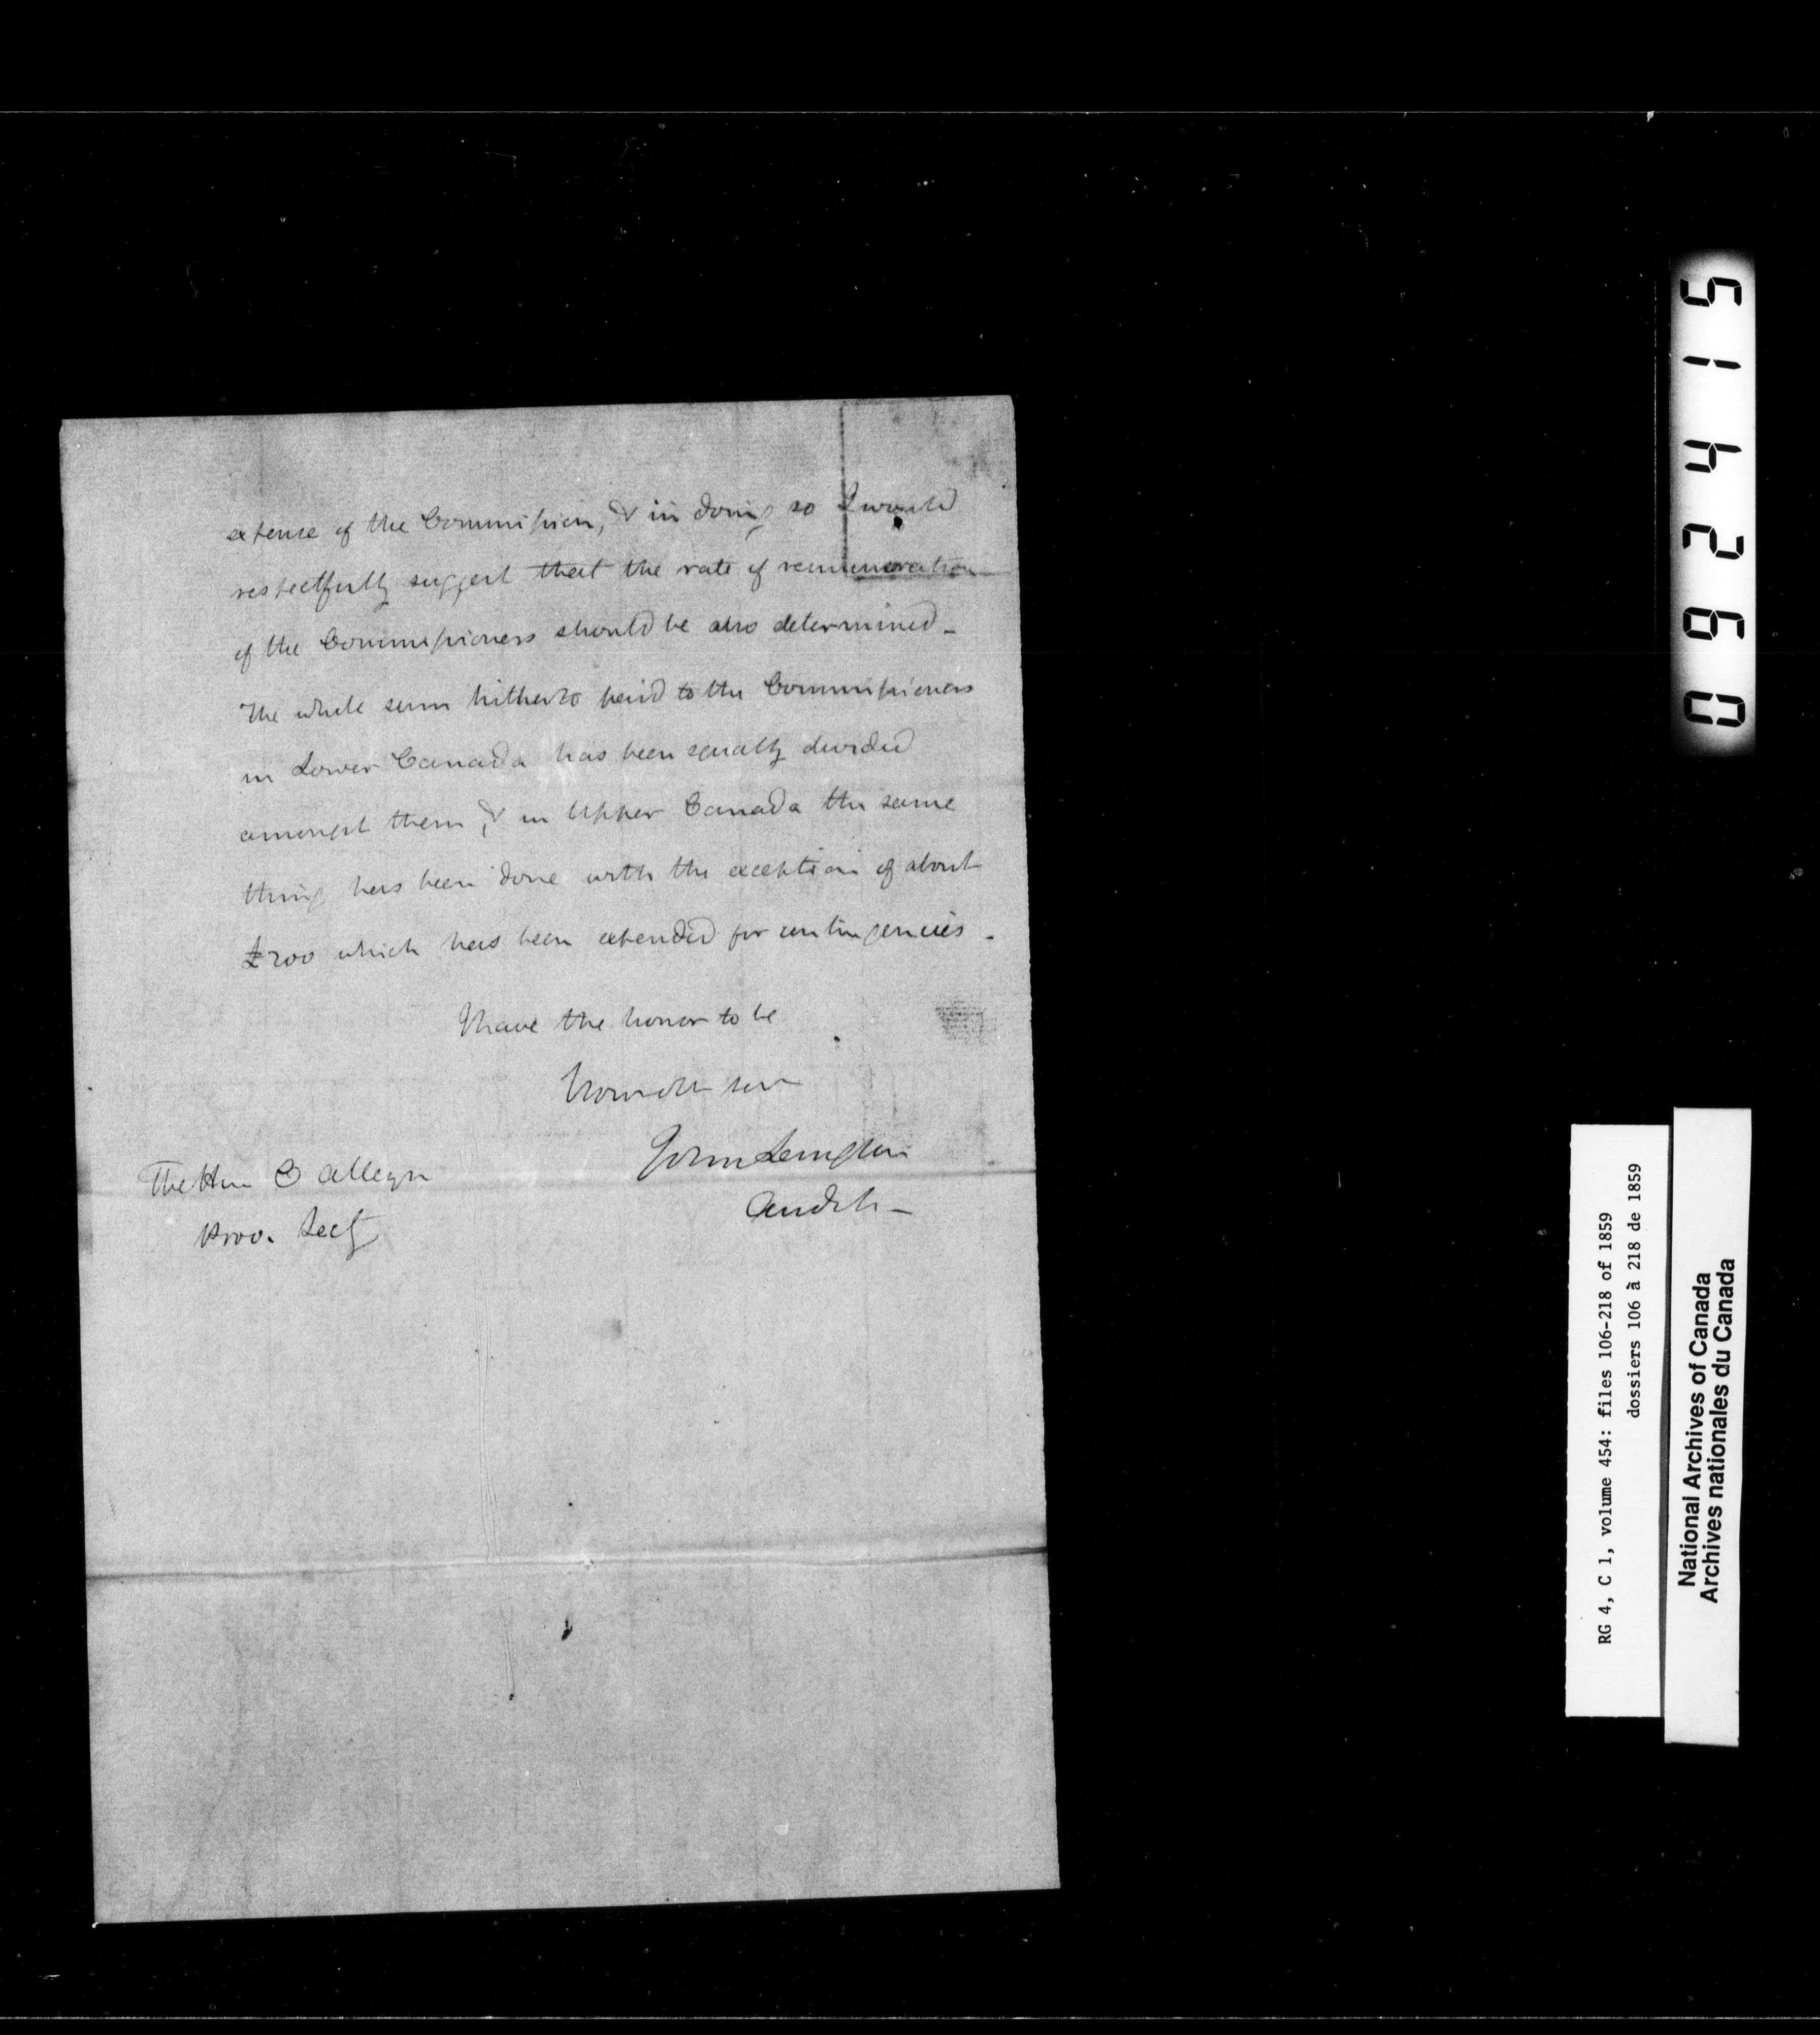 expense of the Commission, & in doing so I would
respectfully suggest that the rate of remuneration
of the Commissioners should be also determined -
The whole sum hitherto paid to the Commissioners
in Lower Canada has been equally divided
amongst them, & in Upper Canada the same
thing has been done with the exception of about
£200 which has been expended for contingencies -
I have the honor to be
Your obt serv
John Langton
Auditor -
The Hon C Alleyn
Prov. Secy
092415
RG 4, C 1, volume 454: files 106-218 of 1859
dossiers 106 à 218 de 1859
National Archives of Canada
Archives nationales du Canada